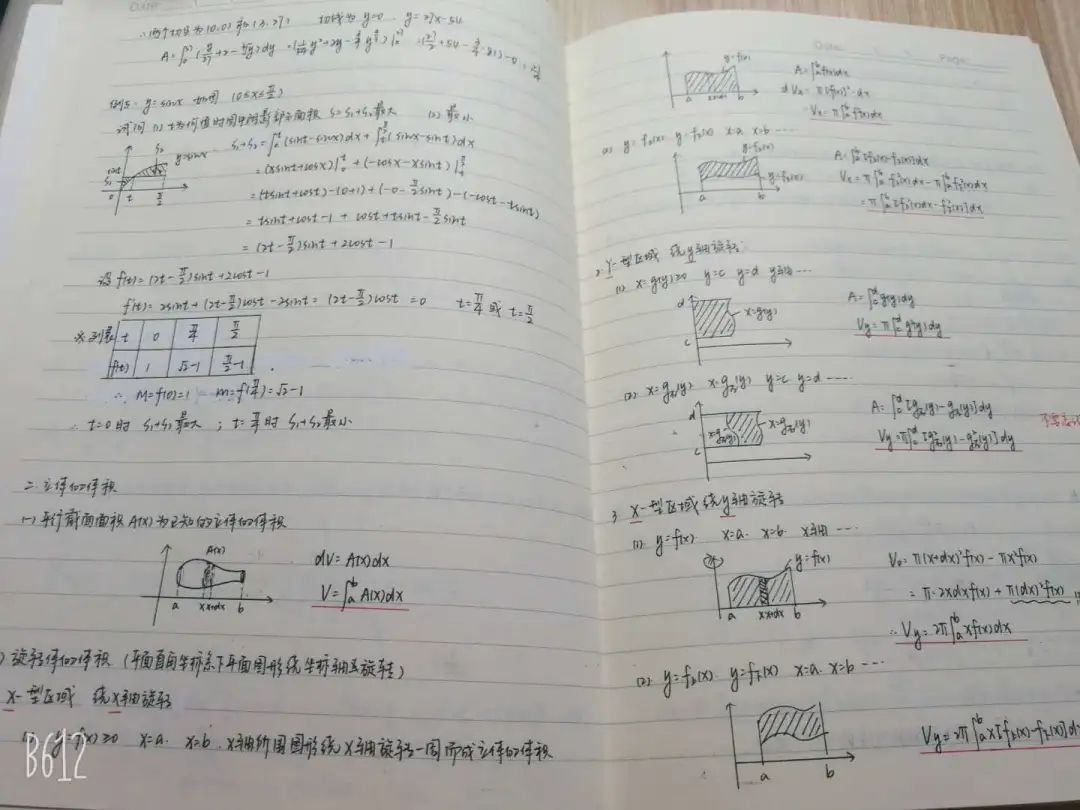 ∴两个切点为(0,0)和(3,27) 切线为 y=0, y=27x-54
A=∫₀²⁷(y/27+2-∛y)dy =(1/54 y²+2y-3/4 y^(4/3))|₀²⁷
y=sinx 如图 (0≤x≤π/2)
试问 (1) t为何值时图中阴影部分面积 S=S₁+S₂最大 (2) 最小
S₂
sint
y=sinx
S₁
0 t π/2
S₁+S₂=∫₀ᵗ(sint-sinx)dx+∫ₜ^(π/2)(sinx-sint)dx
=(xsint+cosx)|₀ᵗ+(-cosx-xsint)|ₜ^(π/2)
=(tsint+cost)-(0+1)+(-0-π/2 sint)-(-cost-tsint)
=tsint+cost-1+cost+tsint-π/2 sint
=(2t-π/2)sint+2cost-1
设f(t)=(2t-π/2)sint+2cost-1
f'(t)=2sint+(2t-π/2)cost-2sint=(2t-π/2)cost=0 t=π/4 或 t=π/2
※列表 t 0 π/4 π/2
f(t) 1 √2-1 π/2-1
∴ M=f(0)=1 m=f(π/4)=√2-1
∴ t=0时 S₁+S₂最大 ; t=π/4时 S₁+S₂最小
二. 立体的体积
(一) 平行截面面积A(x)为已知的立体的体积
A(x)
a x x+dx b
dV=A(x)dx
V=∫ₐᵇA(x)dx
) 旋转体的体积 (平面直角坐标系下平面图形绕坐标轴旋转)
X-型区域 绕X轴旋转
y=f(x)≥0 x=a. x=b. x轴所围图形绕X轴旋转一周而成立体的体积
y=f(x)
a x x+dx b
A=∫ₐᵇf(x)dx
dVx=π[f(x)]²·dx
Vx=π∫ₐᵇf²(x)dx
(2) y=f₂(x) y=f₁(x) x=a x=b ····
y=f₂(x)
y=f₁(x)
a b
A=∫ₐᵇ[f₂(x)-f₁(x)]dx
Vx=π∫ₐᵇf₂²(x)dx-π∫ₐᵇf₁²(x)dx
=π∫ₐᵇ[f₂²(x)-f₁²(x)]dx
2. Y-型区域 绕y轴旋转
(1) x=g(y)≥0 y=c y=d y轴····
d
c
x=g(y)
A=∫꜀ᵈg(y)dy
Vy=π∫꜀ᵈg²(y)dy
(2) x=g₂(y) x=g₁(y) y=c y=d ····
d
c
x=g₁(y)
x=g₂(y)
A=∫꜀ᵈ[g₂(y)-g₁(y)]dy
Vy=π∫꜀ᵈ[g₂²(y)-g₁²(y)]dy
3. X-型区域绕y轴旋转
(1) y=f(x) x=a. x=b. x轴····
y=f(x)
a x x+dx b
V₀=π(x+dx)²f(x)-πx²f(x)
=π·2xdxf(x)+π(dx)²f(x)
∴ Vy=2π∫ₐᵇxf(x)dx
(2) y=f₂(x). y=f₁(x) x=a. x=b ····
a b
Vy=2π∫ₐᵇx[f₂(x)-f₁(x)]dx
B612